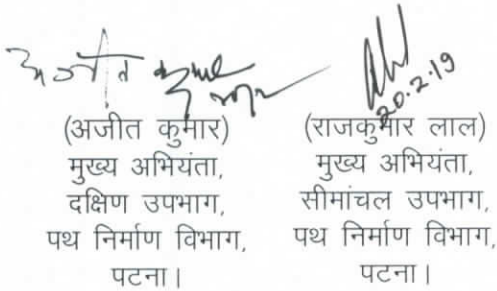 अजीत कुमार
20.2.19
(अजीत कुमार)
मुख्य अभियंता,
दक्षिण उपभाग,
पथ निर्माण विभाग,
पटना।
(राजकुमार लाल)
मुख्य अभियंता,
सीमांचल उपभाग,
पथ निर्माण विभाग,
पटना।